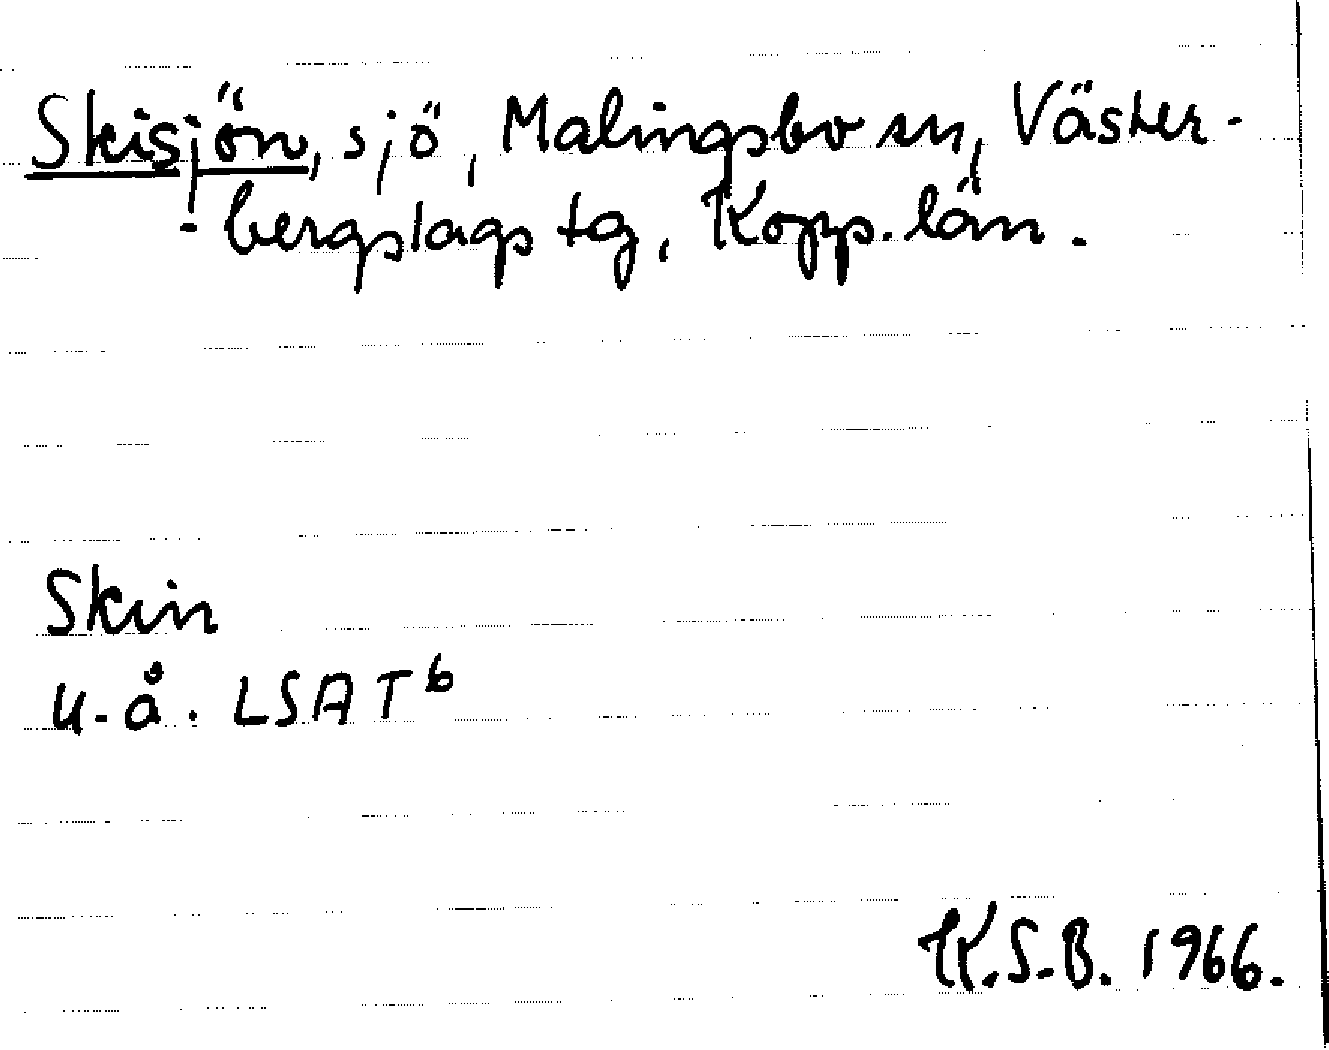 Skisjön, sjö, Malingsbo sn, Väster-
-bergslags tg, Kopp. län.
Skin
u. å. LSA T b
K.S.B. 1966.